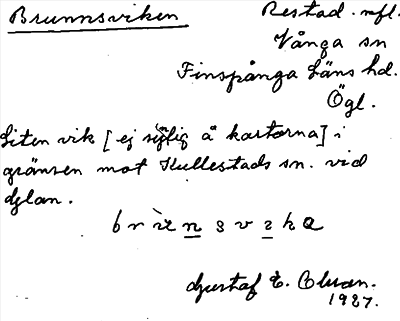 Brunnsviken
Restad. mfl.
Vånga sn
Finspånga Läns hd.
Ögl.
Liten vik [ej synlig å kartorna] i
gränsen mot Kullestads sn. vid
Gustaf E. Olsson.
1927.